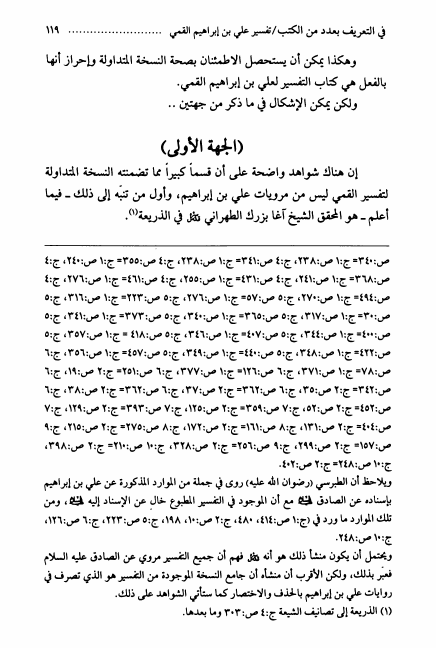 في التعريف بعدد من الكتب/تفسير علي بن إبراهيم القمي ........................ ١١٩
وهكذا يمكن أن يستحصل الاطمئنان بصحة النسخة المتداولة وإحراز أنها
بالفعل هي كتاب التفسير لعلي بن إبراهيم القمي.
ولكن يمكن الإشكال في ما ذكر من جهتين ..
(الجهة الأولى)
إن هناك شواهد واضحة على أن قسماً كبيراً مما تضمنته النسخة المتداولة
لتفسير القمي ليس من مرويات علي بن إبراهيم، وأول من تنبّه إلى ذلك ـ فيما
أعلم ـ هو المحقق الشيخ آغا بزرك الطهراني في الذريعة(١).
ص:٣٤٠= ج:١ ص:٢٣٨، ج:٤ ص:٣٤١= ج:١ ص:٢٣٨، ج:٤ ص:٣٥٥= ج:١ ص:٢٤٠، ج:٤
ص:٣٦٨= ج:١ ص:٢٤١، ج:٤ ص:٤٣١= ج:١ ص:٢٥٥، ج:٤ ص:٤٦١= ج:١ ص:٢٧٦، ج:٤
ص:٤٩٤= ج:١ ص:٢٧٠، ج:٥ ص:٥٧= ج:١ ص:٢٧٦، ج:٥ ص:٢٢٣= ج:١ ص:٣١٦، ج:٥
ص:٣٠= ج:١ ص:٣١٧، ج:٥ ص:٣٦٥= ج:١ ص:٣٤٠، ج:٥ ص:٣٧٣= ج:١ ص:٣٤١، ج:٥
ص:٤٠٠= ج:١ ص:٣٤٤، ج:٥ ص:٤٠٧= ج:١ ص:٣٤٦، ج:٥ ص:٤١٨= ج:١ ص:٣٥٧، ج:٥
ص:٤٢٢= ج:١ ص:٣٤٨، ج:٥ ص:٤٤٠= ج:١ ص:٣٤٩، ج:٥ ص:٤٥٧= ج:١ ص:٣٥٦، ج:٦
ص:٧٨= ج:١ ص:٣٧١، ج:٦ ص:١٢٦= ج:١ ص:٣٧٧، ج:٦ ص:٢٥١= ج:٢ ص:١٩، ج:٦
ص:٣٤٢= ج:٢ ص:٣٥، ج:٦ ص:٣٦٢= ج:٢ ص:٣٧، ج:٦ ص:٣٦٢= ج:٢ ص:٣٨، ج:٦
ص:٤٥٢= ج:٢ ص:٥٢، ج:٧ ص:٣٥٩= ج:٢ ص:١٢٥، ج:٧ ص:٣٩٣= ج:٢ ص:١٢٩، ج:٧
ص:٤٠٤= ج:٢ ص:١٣١، ج:٨ ص:١٦١= ج:٢ ص:١٧٢، ج:٨ ص:٢٧٥= ج:٢ ص:٢١٥، ج:٩
ص:١٥٧= ج:٢ ص:٢٩٩، ج:٩ ص:٢٥٦= ج:٢ ص:٣٢٨، ج:١٠ ص:٢١٠= ج:٢ ص:٣٩٨،
ج:١٠ ص:٢٤٨= ج:٢ ص:٤٠٢.
ويلاحظ أن الطبرسي (رضوان الله عليه) روى في جملة من الموارد المذكورة عن علي بن إبراهيم
بإسناده عن الصادق مع أن الموجود في التفسير المطبوع خالٍ عن الإسناد إليه ، ومن
تلك الموارد ما ورد في (ج:١ ص:٤١٤، ٤٨٠، ج:٢ ص:١٠، ١٩٨، ج:٥ ص:٢٢٣، ج:٦ ص:١٢٦،
ج:١٠ ص:٢٤٨.
ويحتمل أن يكون منشأ ذلك هو أنه فهم أن جميع التفسير مروي عن الصادق عليه السلام
فعبّر بذلك، ولكن الأقرب أن منشأه أن جامع النسخة الموجودة من التفسير هو الذي تصرف في
روايات علي بن إبراهيم بالحذف والاختصار كما ستأتي الشواهد على ذلك.
(١) الذريعة إلى تصانيف الشيعة ج:٤ ص:٣٠٣ وما بعدها.